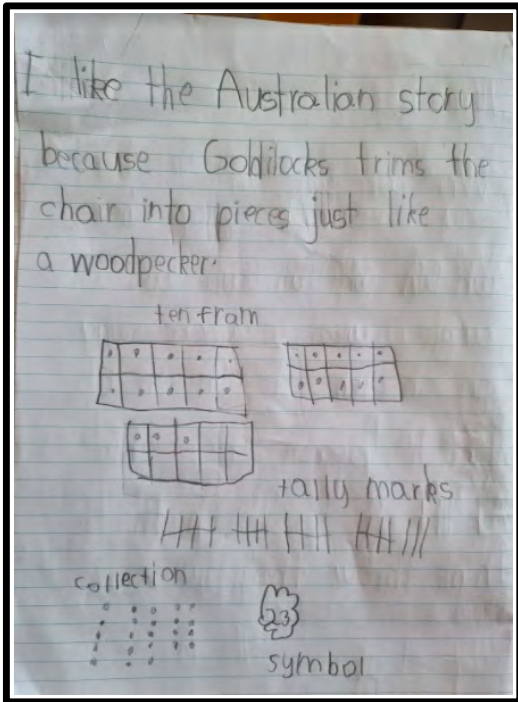 I like the Australian story
because Goldilocks trims the
chair into pieces just like
a woodpecker.
ten fram
tally marks
collection
23
symbol